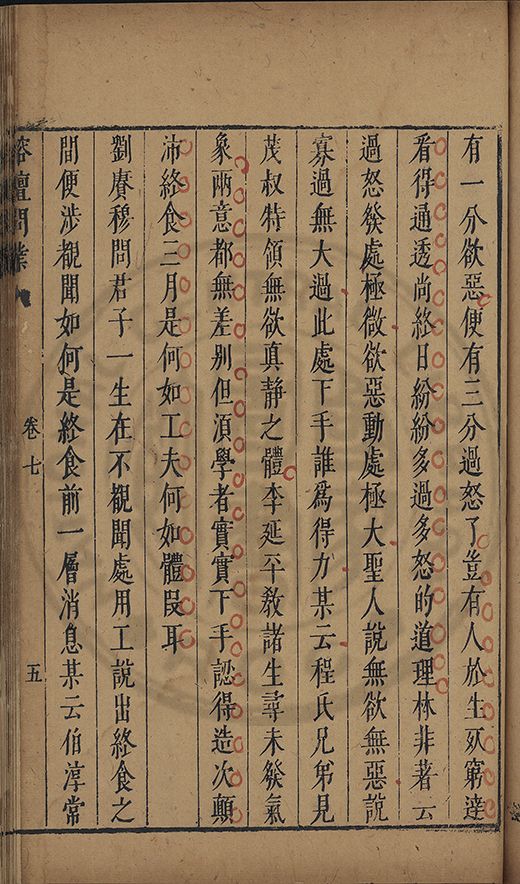 有一分欲惡便有三分過怒了豈有人於生死窮達
看得通透尚終日紛紛多過多怒的道理林非著云
過怒發處極微欲惡動處極大聖人說無欲無惡說
寡過無大過此處下手誰爲得力某云程氏兄弟見
茂叔特領無欲真静之體李延平敎諸生尋未發氣
象兩意都無差别但湏學者實實下手認得造次顛
沛終食三月是何如工夫何如體叚耳
劉賡穆問君子一生在不覩聞處用工說出終食之
間便涉覩聞如何是終食前一層消息某云伯淳常
榕壇問業
卷七
五